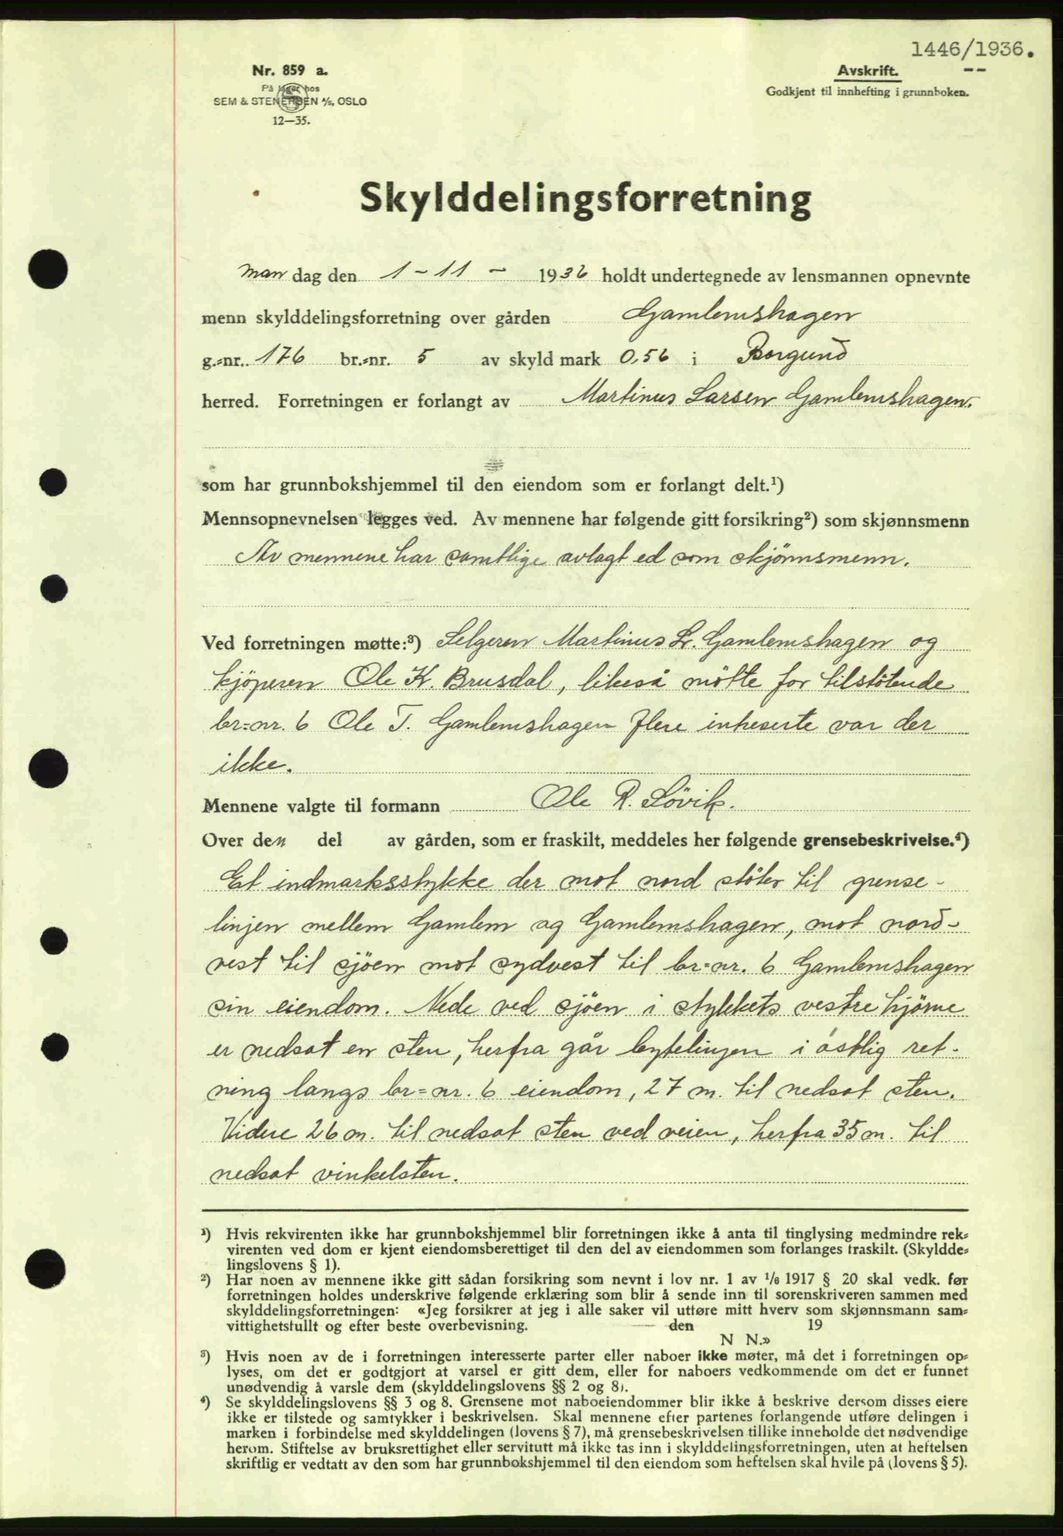 1446/1936.
Nr. 859 a.
På lager hos
SEM & STENERSEN A/S, OSLO
12—35.
Avskrift. --
Godkjent til innhefting i grunnboken.
Skylddelingsforretning
man dag den 1 - 11 - 1936 holdt undertegnede av lensmannen opnevnte
menn skylddelingsforretning over gården Gamlemshagen
g.=nr. 176 br.=nr. 5 av skyld mark 0,56 i Borgund
herred. Forretningen er forlangt av Martinus Larsen Gamlemshagen.
som har grunnbokshjemmel til den eiendom som er forlangt delt.¹)
Mennsopnevnelsen legges ved. Av mennene har følgende gitt forsikring²) som skjønnsmenn
Av mennene har samtlige avlagt ed som skjönnsmenn.
Ved forretningen møtte:³) Selgeren Martinus Lr. Gamlemshagen og
kjöperen Ole K. Brusdal, likeså mötte for tilstötende
br=nr. 6 Ole T. Gamlemshagen flere inteserte var der
ikke.
Mennene valgte til formann Ole R. Lövik.
Over den del av gården, som er fraskilt, meddeles her følgende grensebeskrivelse.⁴)
Et indmarksstykke der mot nord stöter til grense-
linjen mellem Gamlem og Gamlemshagen, mot nord-
vest til sjöen mot sydvest til br=nr. 6 Gamlemshagen
sin eiendom. Nede ved sjöen i stykkets vestre hjörne
er nedsat en sten, herfra går bytelinjen i östlig ret-
ning langs br=nr. 6 eiendom, 27 m. til nedsat sten.
Videre 26 m. til nedsat sten ved veien, herfra 35 m. til
nedsat vinkelsten.
¹) Hvis rekvirenten ikke har grunnbokshjemmel blir forretningen ikke å anta til tinglysing medmindre rek=
virenten ved dom er kjent eiendomsberettiget til den del av eiendommen som forlanges fraskilt. (Skyldde=
lingslovens § 1).
²) Har noen av mennene ikke gitt sådan forsikring som nevnt i lov nr. 1 av 1/6 1917 § 20 skal vedk. før
forretningen holdes underskrive følgende erklæring som blir å sende inn til sorenskriveren sammen med
skylddelingsforretningen: «Jeg forsikrer at jeg i alle saker vil utføre mitt hverv som skjønnsmann sam=
vittighetsfullt og efter beste overbevisning. den 19
N N.»
³) Hvis noen av de i forretningen interesserte parter eller naboer ikke møter, må det i forretningen op=
lyses, om det er godtgjort at varsel er gitt dem, eller for naboers vedkommende om det er funnet
unødvendig å varsle dem (skylddelingslovens §§ 2 og 8).
⁴) Se skylddelingslovens §§ 3 og 8. Grensene mot naboeiendommer blir ikke å beskrive dersom disses eiere
ikke er tilstede og samtykker i beskrivelsen. Skal mennene efter partenes forlangende utføre delingen i
marken i forbindelse med skylddelingen (lovens § 7), må grensebeskrivelsen tillike inneholde det nødvendige
herom. Stiftelse av bruksrettighet eller servitutt må ikke tas inn i skylddelingsforretningen, uten at heftelsen
skriftlig er vedtatt av den som har grunnbokshjemmel til den eiendom som heftelsen skal hvile på (lovens § 5).